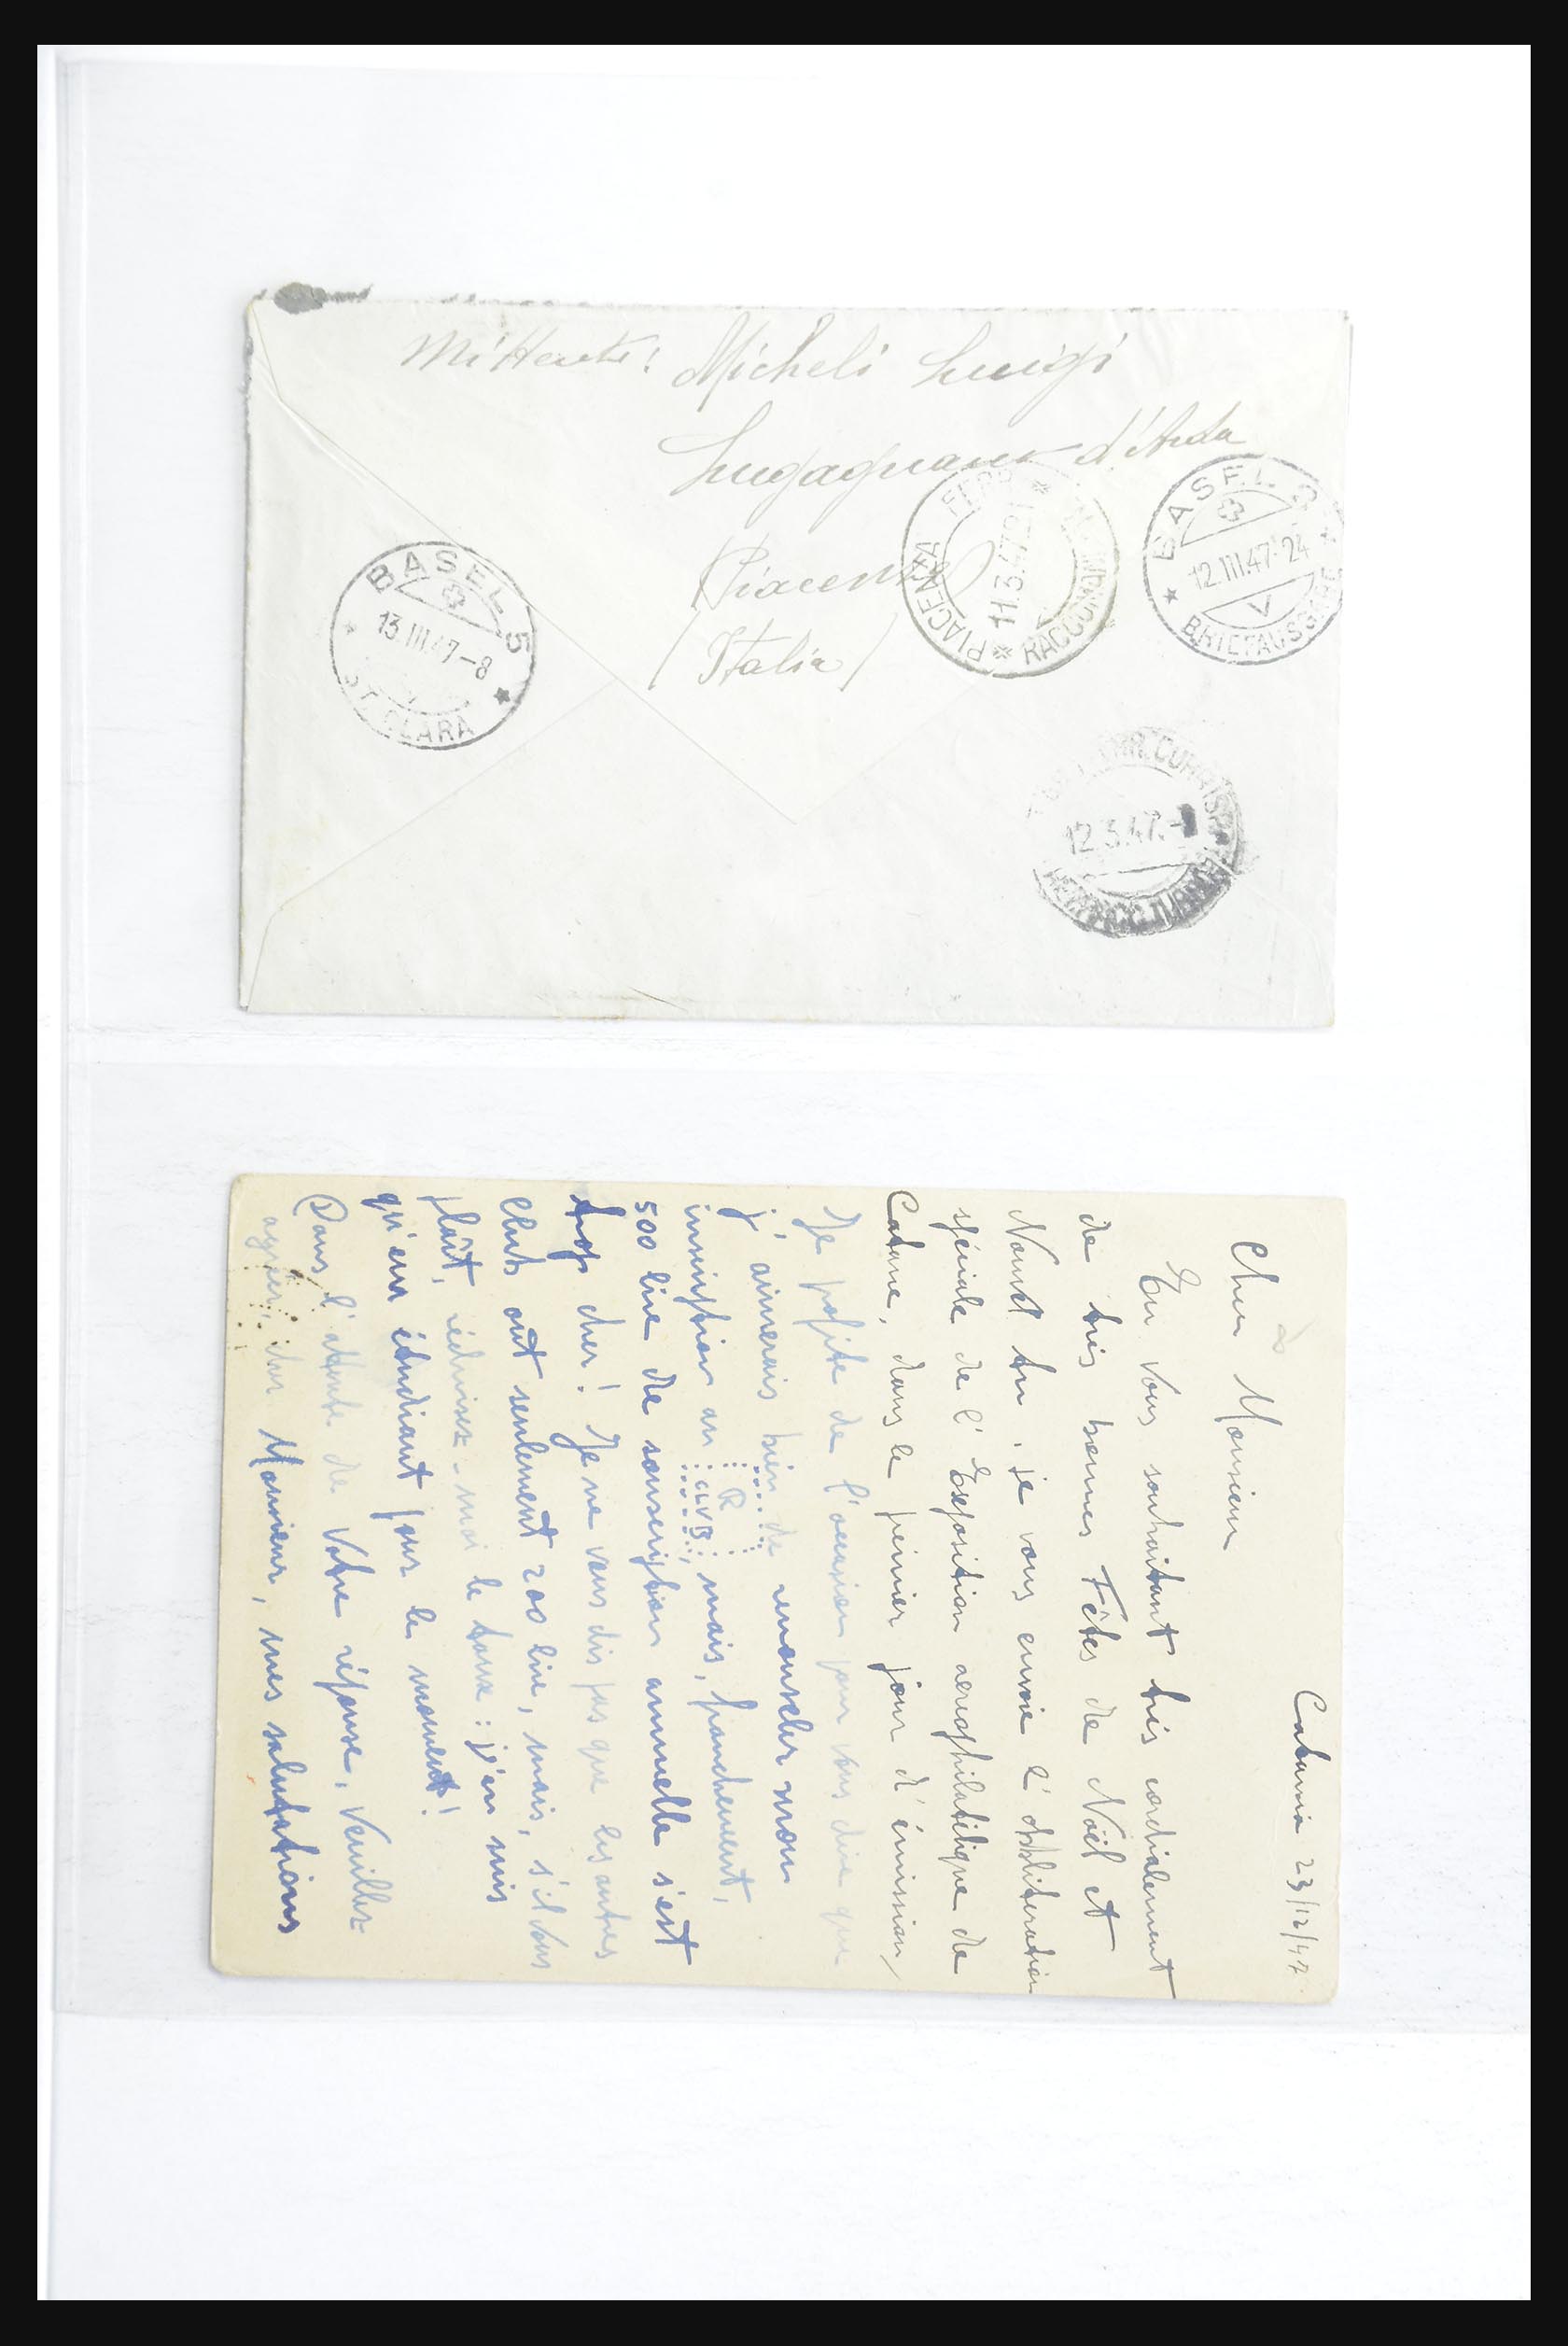 Mittente: Micheli Luigi
Lugagnano d'Arda
Piacenza
(Italia)
BASEL 5
13.III.47-8
ST. CLARA
PIACENZA FERR.
11.3.47
RACCOMAN
BASEL 2
12.III.47-24
V
BRIEFAUSGABE
12.3.47.-
Catania 23/12/47
Cher Monsieur
En vous souhaitant très cordialement
de très bonnes Fêtes de Noël et
Nouvel An, je vous envoie l'obbliteration
spéciale de l'Exposition aerophilatélique de
Catane, dans le prémier jour d'émission,
Je profite de l'occasion pour vous dire que
j'aimerais bien de renouveler mon
inscription au R CLUB, mais, franchement,
500 lire de souscription annuelle s'est
trop cher! Je ne vous dis pas que les autres
Clubs ont seulement 200 lire, mais, s'il vous
plaît, réduisez-moi le taux: j'en suis
qu'un étudiant pour le moment!
Dans l'attente de Votre réponse, Veuillez
agréer, cher Monsieur, mes salutations